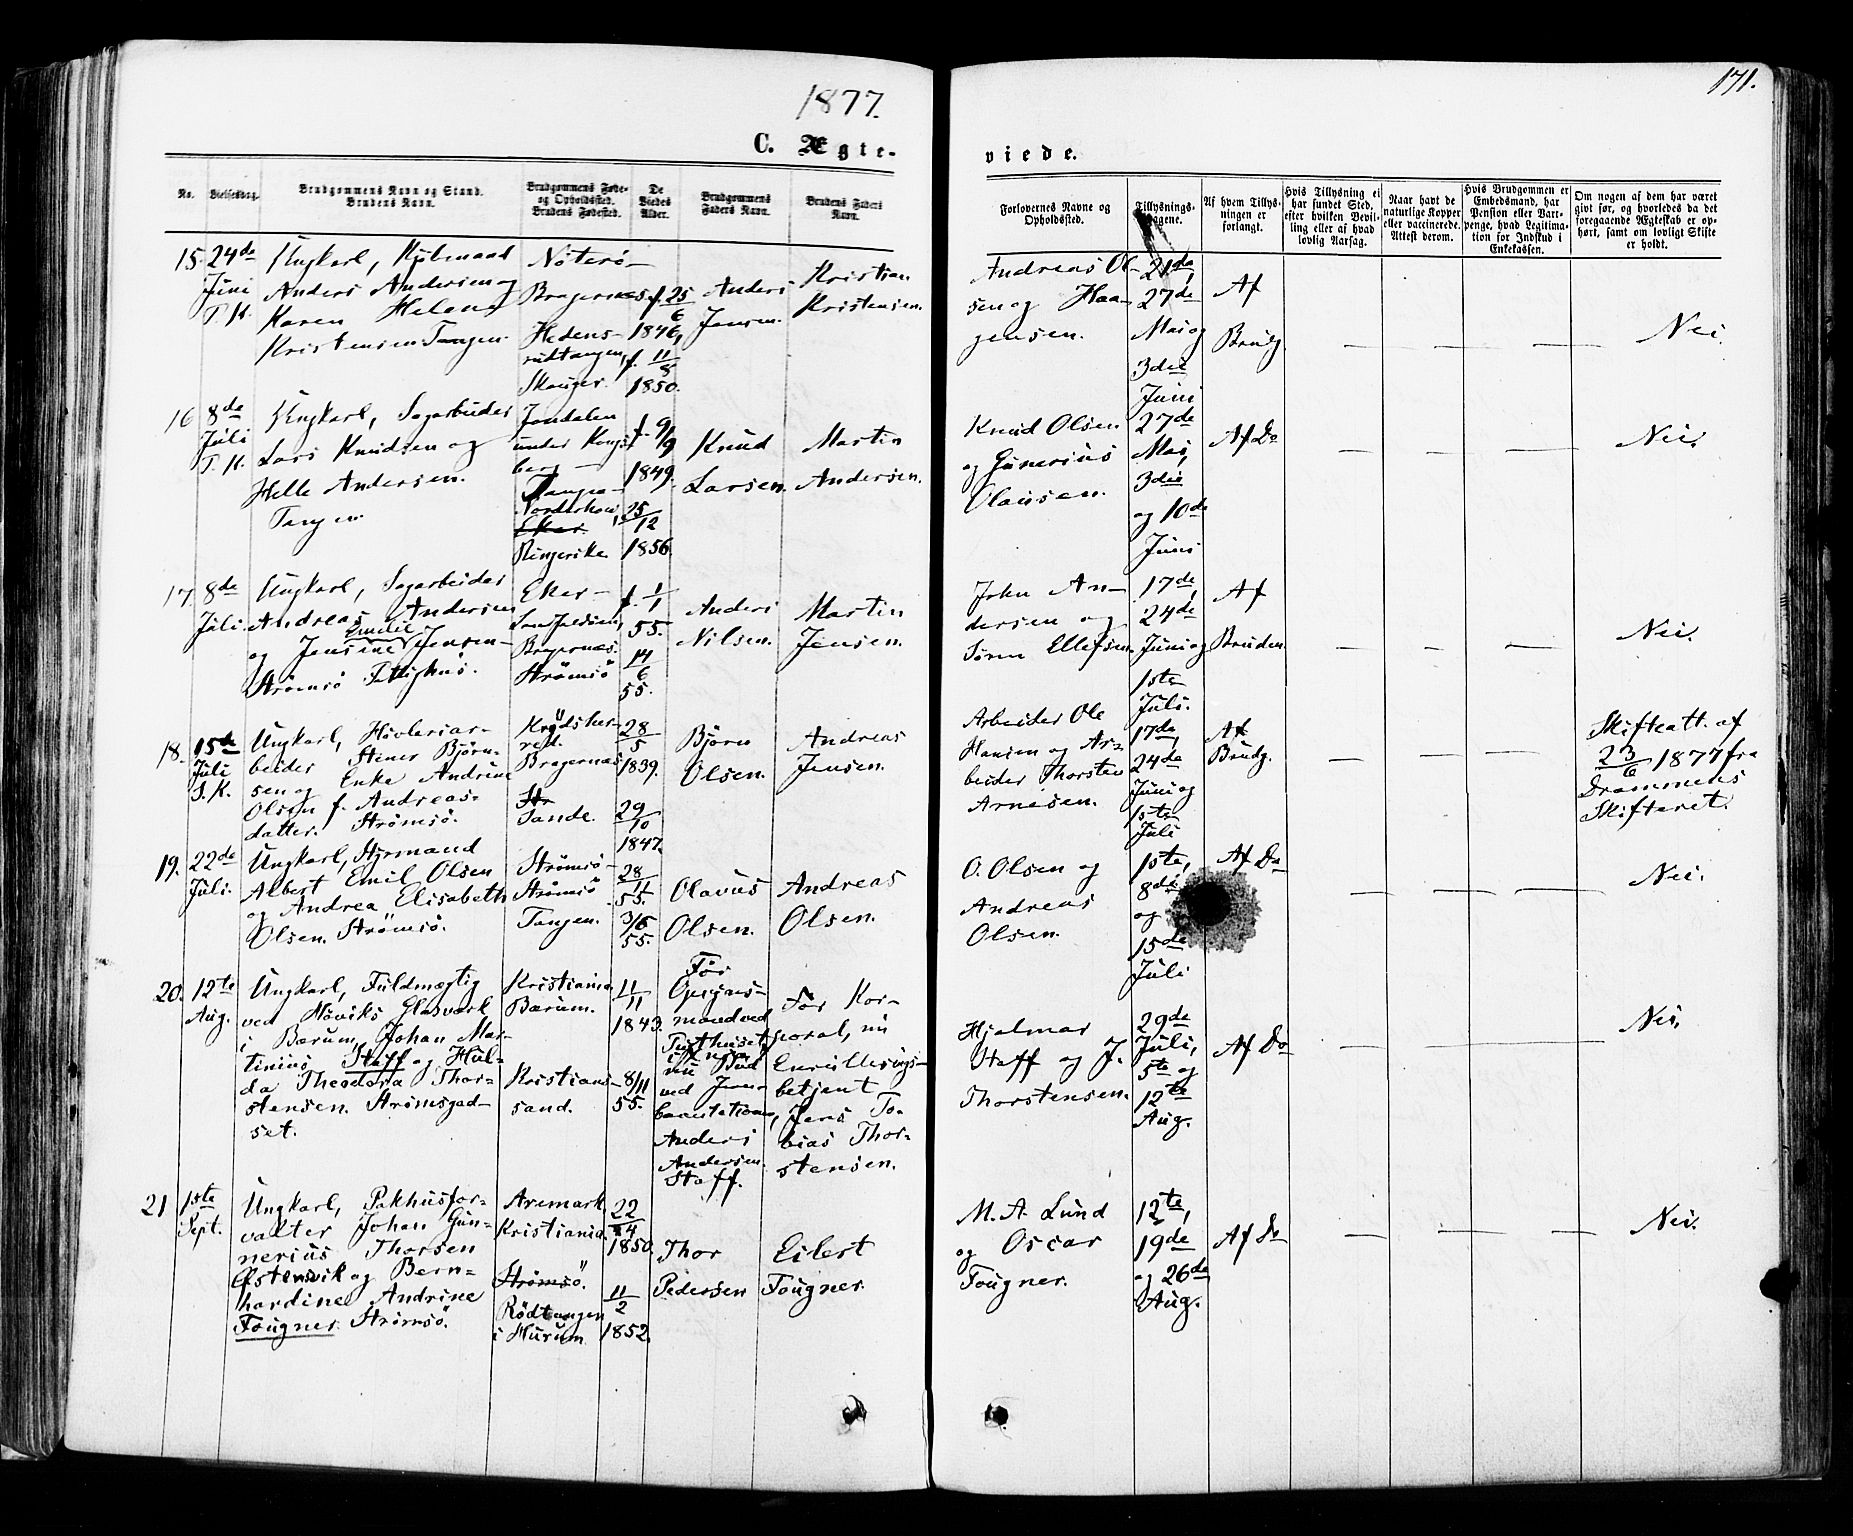 1877.
171.
C. Ægte-
viede.
No.
Vielsesdag.
Brudgommens Navn og Stand.
Brudens Navn.
Brudgommens Føde-
og Opholdssted.
Brudens Fødested.
De
Viedes
Alder.
Brudgommens
Faders Navn.
Brudens Faders
Navn.
Forlovernes Navne og
Opholdssted.
Tillysnings-
dagene.
Af hvem Tillys-
ningen er
forlangt.
Hvis Tillysning ei
har fundet Sted,
efter hvilken Bevil-
ling eller af hvad
lovlig Aarsag.
Naar havt de
naturlige Kopper
eller vaccinerede.
Attest derom.
Hvis Brudgommen er
Embedsmand, har
Pension eller Vart-
penge, hvad Legitima-
tion for Indskud i
Enkekassen.
Om nogen af dem har været
gift før, og hvorledes da det
foregaaende Ægteskab er op-
hørt, samt om lovligt Skifte
er holdt.
15.
24de
Juni
T. K.
Ungkarl,
Anders Andersen og
Karen Helene
Kristensen Tangen.
Nöterö-
Bragernes.
Hedens-
rudtangen,
Skouger.
f. 25/6
1846,
f. 11/8
1850.
Anders
Jensen.
Kristian
Kristensen.
Andreas Ol-
sen og Haa-
gensen.
21de
27de
Mai og
3die
Juni
Af
Brudg.
— — —
Nei.
16
8de
Juli
T. K.
Ungkarl, Sagarbeider
Lars Knudsen og
Helle Andersen.
Tangen
Jondalen
under Kongs-
berg —
Norderhov,
Eker
Ringerike.
f. 9/9
1849.
25/12
1856.
Knud
Larsen.
Martin
Andersen.
Knud Olsen
og Gunerius
Olausen.
27de
Mai,
3die
og 10de
Juni
Af Do
— — —
Nei.
17.
8de
Juli.
Ungkarl, Sagarbeider
Andreas Andersen
og Jensine Emilie Jensen-
Strömsö Fattighus.
Eker —
Bragernes.
Strömsö
f. 1/1
55.
14/6
55.
Anders
Nilsen.
Martin
Jensen.
John An-
dersen og
Sören Ellefsen.
17de,
24de
Juni og
1ste
Juli.
Af
Bruden.
— — —
Nei.
18.
15de
Juli
S. K.
Ungkarl, Hövleriar-
beider Stener Björn-
sen og Enke Andrine
Olsen f. Andreas-
datter. Strömsö.
Krödsher-
red.
Bragernes
Str
Sande.
28/5
1839.
29/10
1847.
Björn
Olsen.
Andreas
Jensen.
Arbeider Ole
Hansen og Ar-
beider Thorsten
Arnesen.
17de,
24de
Juni og
1ste
Juli
Af
Brudg.
— — —
Skifteatt. af
23/6 1877 fra
Drammens
Skifteret.
19.
22de
Juli.
Ungkarl, Styrmand
Albert Emil Olsen
og Andrea Elisabeth
Olsen. Strömsö.
Strömsö —
Strömsö
Tangen.
28/11
55.
3/6
55.
Olavus
Olsen.
Andreas
Olsen.
O. Olsen og
Andreas
Olsen.
1ste,
8de
og
15de
Juli
Af Do
— — —
Nei.
20.
12te
Aug.
Ungkarl, Fuldmægtig
ved Höviks Glasværk
i Bærum, Johan Mar-
tinius Staff og Hul-
da Theodora Thor-
stensen. Strömsgod-
set.
Kristiania
Bærum.
Kristians-
sand.
11/11
1843.
8/11
55.
Før
Opsyns-
mand ved
nu Bud
ved Jern-
banestationen,
Anders
Andersen
Staff.
Før Kor-
poral, nu
Enrullerings-
betjent
Jens To-
bias Thor-
stensen.
Hjalmar
Staff og J.
Thorstensen.
29de
Juli,
5te og
12te
Aug.
Af Do
— — —
Nei.
21
1ste
Sept.
Ungkarl, Pakhusfor-
valter Johan Gun-
nerius Thorsen
Östensvik og Bern-
hardine Andrine
Fougner. Strömsö.
Aremark
Kristiania.
Strömsö.
Rödtangen
i Hurum.
22/4
1850.
11/2
1852.
Thor
Pedersen
Eilert
Fougner.
M. A. Lund
og Oscar
Fougner.
12te,
19de
og 26de
Aug.
Af Do
— — —
Nei.